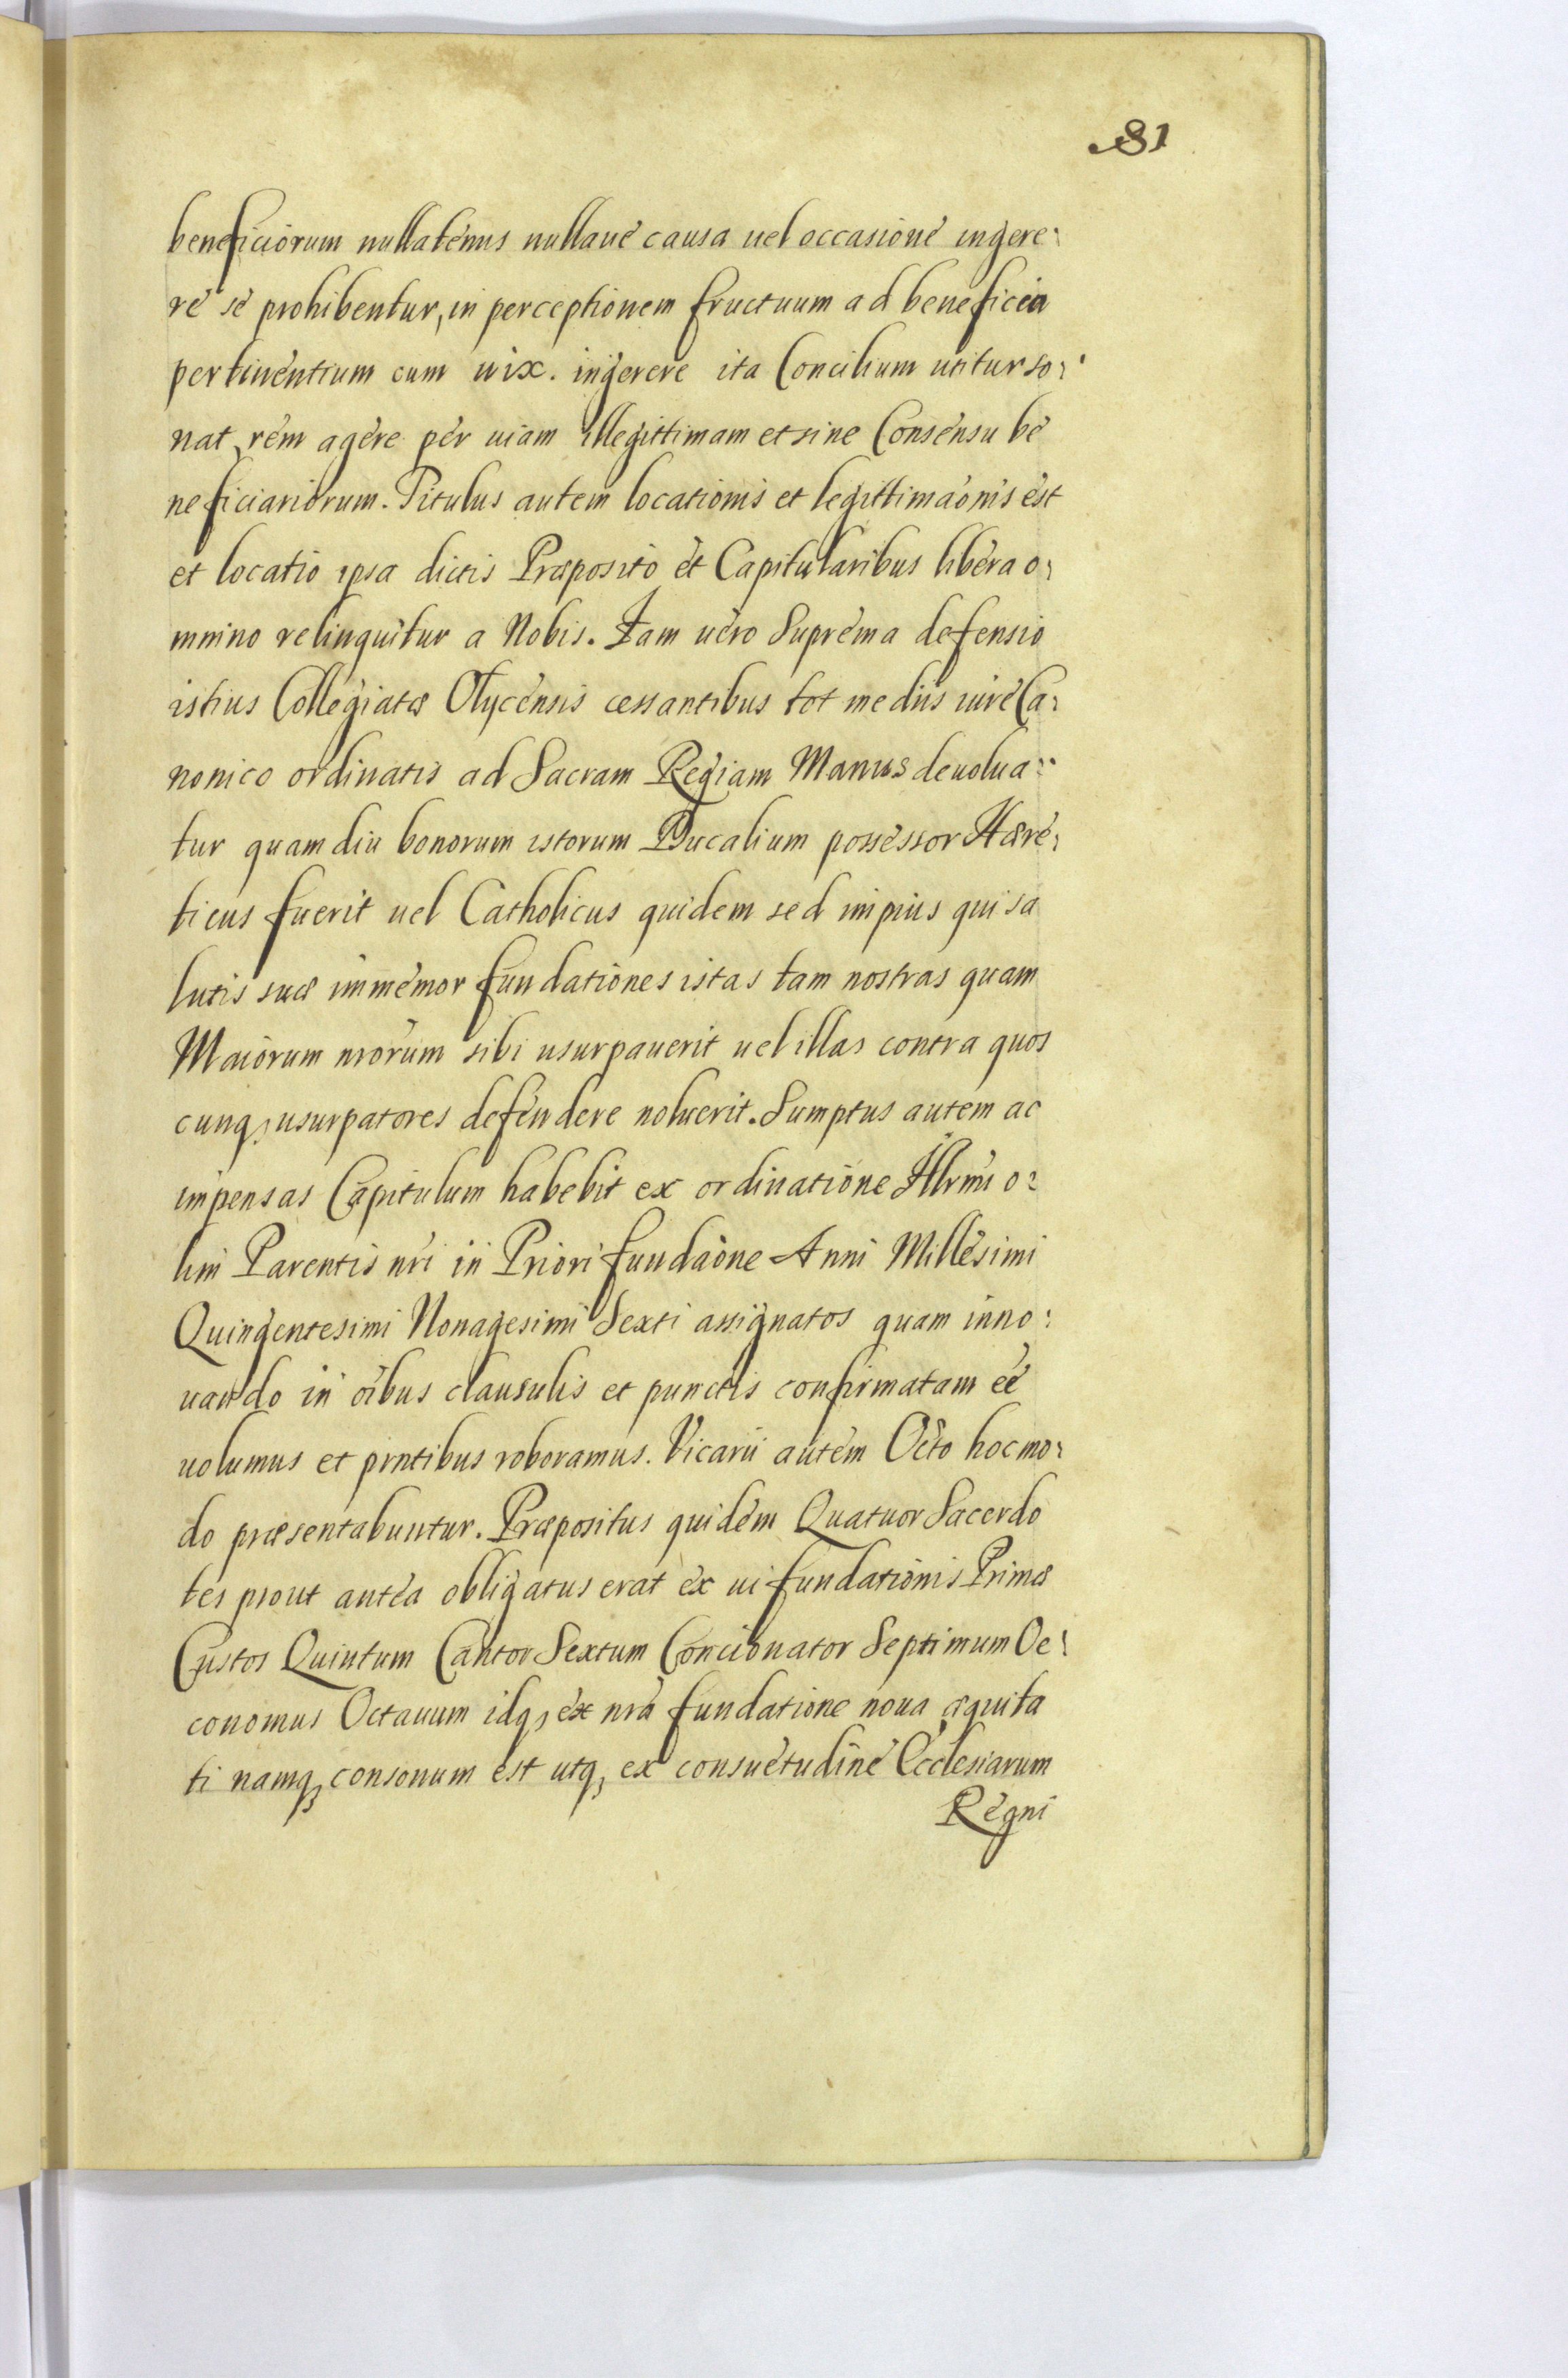 81
beneficiorum nullatenus nullaue causa uel occasione ingere:
re se prohibentur, in perceptionem fructuum ad beneficia
pertinentium cum uix. ingerere ita Concilium utitur so:
nat, rem agere per uiam illegittimam et sine Consensu be
neficiariorum. Titulus autem locationis et legittimaonis est
et locatio ipsa dictis Præposito et Capitularibus libera o:
mnino relinquitur a Nobis. Iam uero Suprema defensio
istius Collegiatæ Olycensis cessantibus tot mediis iure Ca:
nonico ordinatis ad Sacram Regiam Manus deuolua:
tur quamdiu bonorum istorum Ducalium possessor Hære:
ticus fuerit uel Catholicus quidem sed impius qui sa
lutis suæ immemor fundationes istas tam nostras quam
Maiorum nrorum sibi usurpauerit uel illas contra quos
cunq, usurpatores defendere noluerit. Sumptus autem ac
impensas Capitulum habebit ex ordinatione Illrmi o:
lim Parentis nri in Priori fundaone Anni Millesimi
Quingentesimi Nonagesimi Sexti assignatos quam inno:
uando in oibus clausulis et punctis confirmatam ee
uolumus et prntibus roboramus. Vicarii autem Octo hoc mo:
do præsentabuntur. Præpositus quidem Quatuor Sacerdo
tes prout antea obligatus erat ex ui fundationis Primæ
Custos Quintum Cantor Sextum Concionator Septimum Oe:
conomus Octauum idq, ex nra fundatione noua æquita
ti namq, consonum est utq, ex consuetudine Ecclesiarum
Regni